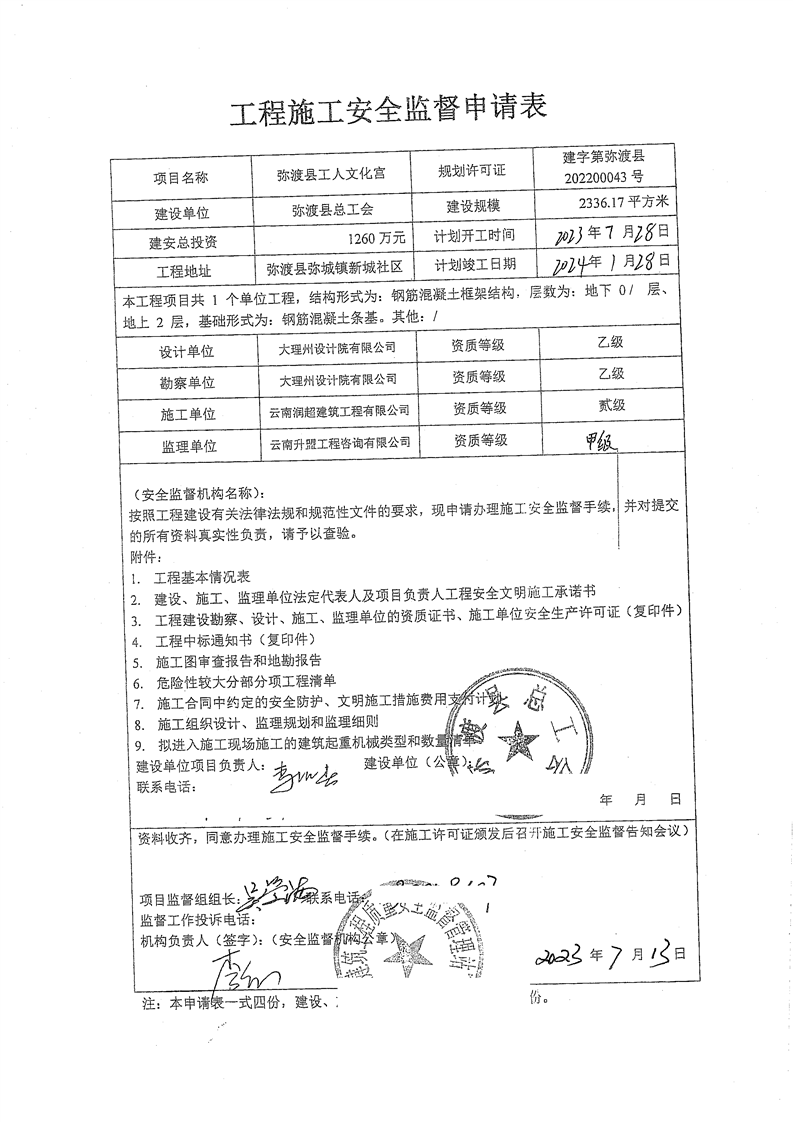 工程施工安全监督申请表
项目名称 弥渡县工人文化宫 规划许可证 建字第弥渡县
202200043 号
建设单位 弥渡县总工会 建设规模 2336.17 平方米
建安总投资 1260 万元 计划开工时间 2023 年 7 月 28 日
工程地址 弥渡县弥城镇新城社区 计划竣工日期 2024 年 1 月 28 日
本工程项目共 1 个单位工程，结构形式为：钢筋混凝土框架结构，层数为：地下 0/ 层、
地上 2 层，基础形式为：钢筋混凝土条基。其他：/
设计单位 大理州设计院有限公司 资质等级 乙级
勘察单位 大理州设计院有限公司 资质等级 乙级
施工单位 云南润超建筑工程有限公司 资质等级 贰级
监理单位 云南升盟工程咨询有限公司 资质等级 甲级
（安全监督机构名称）：
按照工程建设有关法律法规和规范性文件的要求，现申请办理施工安全监督手续，并对提交
的所有资料真实性负责，请予以查验。
附件：
1. 工程基本情况表
2. 建设、施工、监理单位法定代表人及项目负责人工程安全文明施工承诺书
3. 工程建设勘察、设计、施工、监理单位的资质证书、施工单位安全生产许可证（复印件）
4. 工程中标通知书（复印件）
5. 施工图审查报告和地勘报告
6. 危险性较大分部分项工程清单
7. 施工合同中约定的安全防护、文明施工措施费用支付计划
8. 施工组织设计、监理规划和监理细则
9. 拟进入施工现场施工的建筑起重机械类型和数量清单
渡县总工会
建设单位项目负责人： 建设单位（公章）：
联系电话：
年 月 日
资料收齐，同意办理施工安全监督手续。（在施工许可证颁发后召开施工安全监督告知会议）
项目监督组组长： 联系电话：
监督工作投诉电话：
机构负责人（签字）：（安全监督机构公章）
建筑工程质量安全监督管理站
2023 年 7 月 13 日
注：本申请表一式四份，建设、 份。